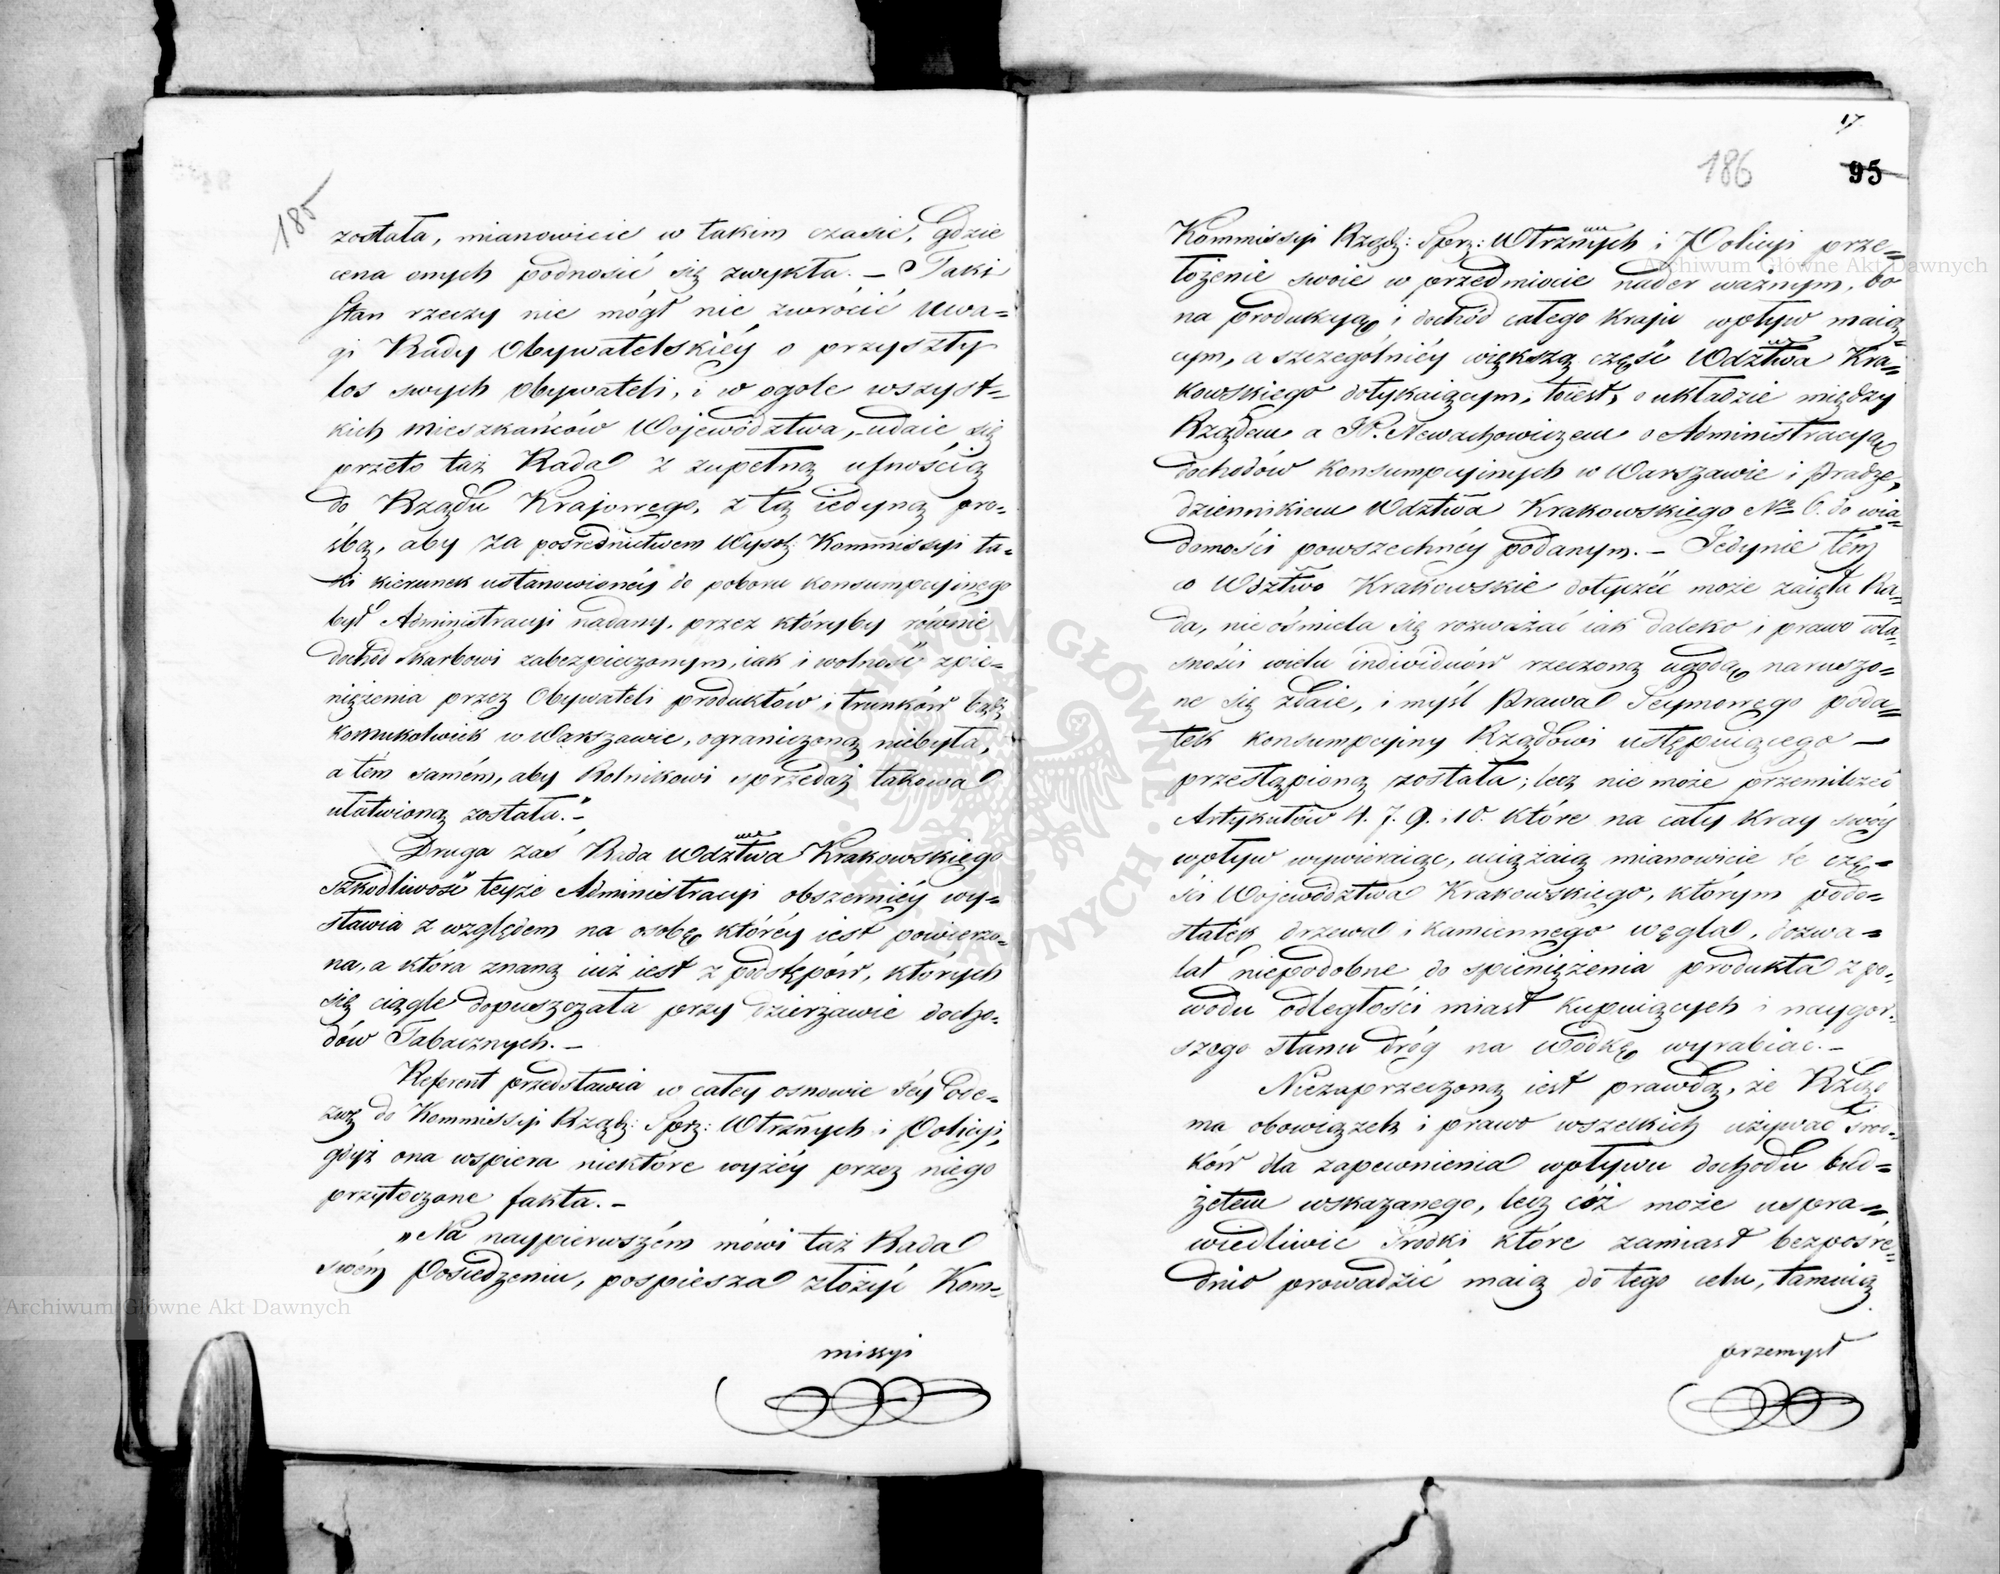 185
została, mianowicie w takim czasie, gdzie
cena onych podnosić się zwykła. – Taki
stan rzeczy nie mógł nie zwrócić uwa=
gi Rady Obywatelskiéy o przyszły
los swych Obywateli, i w ogole wszyst=
kich Mieszkańców Województwa, udaie się
przeto taż Rada z zupełną ufnością
do Rządu Krajowego, z tą iedyną pro=
śbą, aby za pośrednictwem Wysok: Kommissyi ta=
ki kierunek ustanowionéy do poboru konsumpcyinego
był Administracyi nadany, przez któryby równie
dochód Skarbowi zabezpieczonym, iak i wolność spie=
niężenia przez Obywateli produktów i trunków bądź
komukolwiek w Warszawie, ograniczoną niebyła,
a tém samém, aby Rolnikowi sprzedaż takowa
ułatwioną została." –
Druga zaś Rada Wdztwa Krakowskiego
szkodliwość teyże Administracyi obszerniéy wy=
stawia z względem na osobę któréy iest powierzo=
na, a która znaną iuż iest z podstępów, których
się ciągle dopuszczała przy dzierżawie docho=
dów Tabacznych. –
Referent przedstawia w całey osnowie Jéy Ode=
zwę do Kommissyi Rządz: Spr: Wtrznych i Policyi,
gdyż ona wspiera niektóre wyżéy przez niego
przytoczone fakta. –
„Na naypierwszém mówi taż Rada
swém Posiedzeniu, pospiesza złożyć Kom=
missyi
17
186
95
Kommissyi Rządz: Spr: Wtrznych i Policyi prze=
łożenie swoie w przedmiocie nader ważnym, bo
na produkcyą i dochód całego Kraju wpływ maią=
cym, a szczególniéy większą część Wdztwa Kra=
kowskiego dotykaiącym, toiest, o układzie między
Rządem a P. Newachowiczem o Administracyą
dochodów konsumpcyinych w Warszawie i Pradze,
dziennikiem Wdztwa Krakowskiego No 6. do wia=
domości powszechnéy podanym. – Jedynie tém
co Wdztwo Krakowskie dotyczéć może zaięta Ra=
da, nie ośmiela się rozważać iak daleko i prawo wła=
sności wielu individuów rzeczoną ugodą naruszo=
ne się zdaie, i myśl Prawa Seymowego poda=
tek konsumpcyiny Rządowi ustępuiącego –
przestąpioną została; lecz nie może przemilczeć
Artykułów 4. 7. 9. i 10. które na cały Kray swóy
wpływ wywieraiąc, uciążaią mianowicie te czę=
ści Województwa Krakowskiego, którym podo=
statek drzewa i kamiennego węgla, dozwa=
lał niepodobne do spieniężenia produkta z po=
wodu odległości miast kupuiących i naygor=
szego stanu dróg na wódkę wyrabiać. –
Niezaprzeczoną iest prawdą, że Rząd
ma obowiązek i prawo wszelkich używać środ=
ków dla zapewnienia wpływu dochodu bud=
żetem wskazanego, lecz cóż może uspra=
wiedliwić środki które zamiast bezpośre=
dnio prowadzić maią do tego celu, tamuią
przemysł
Archiwum Główne Akt Dawnych
Archiwum Główne Akt Dawnych